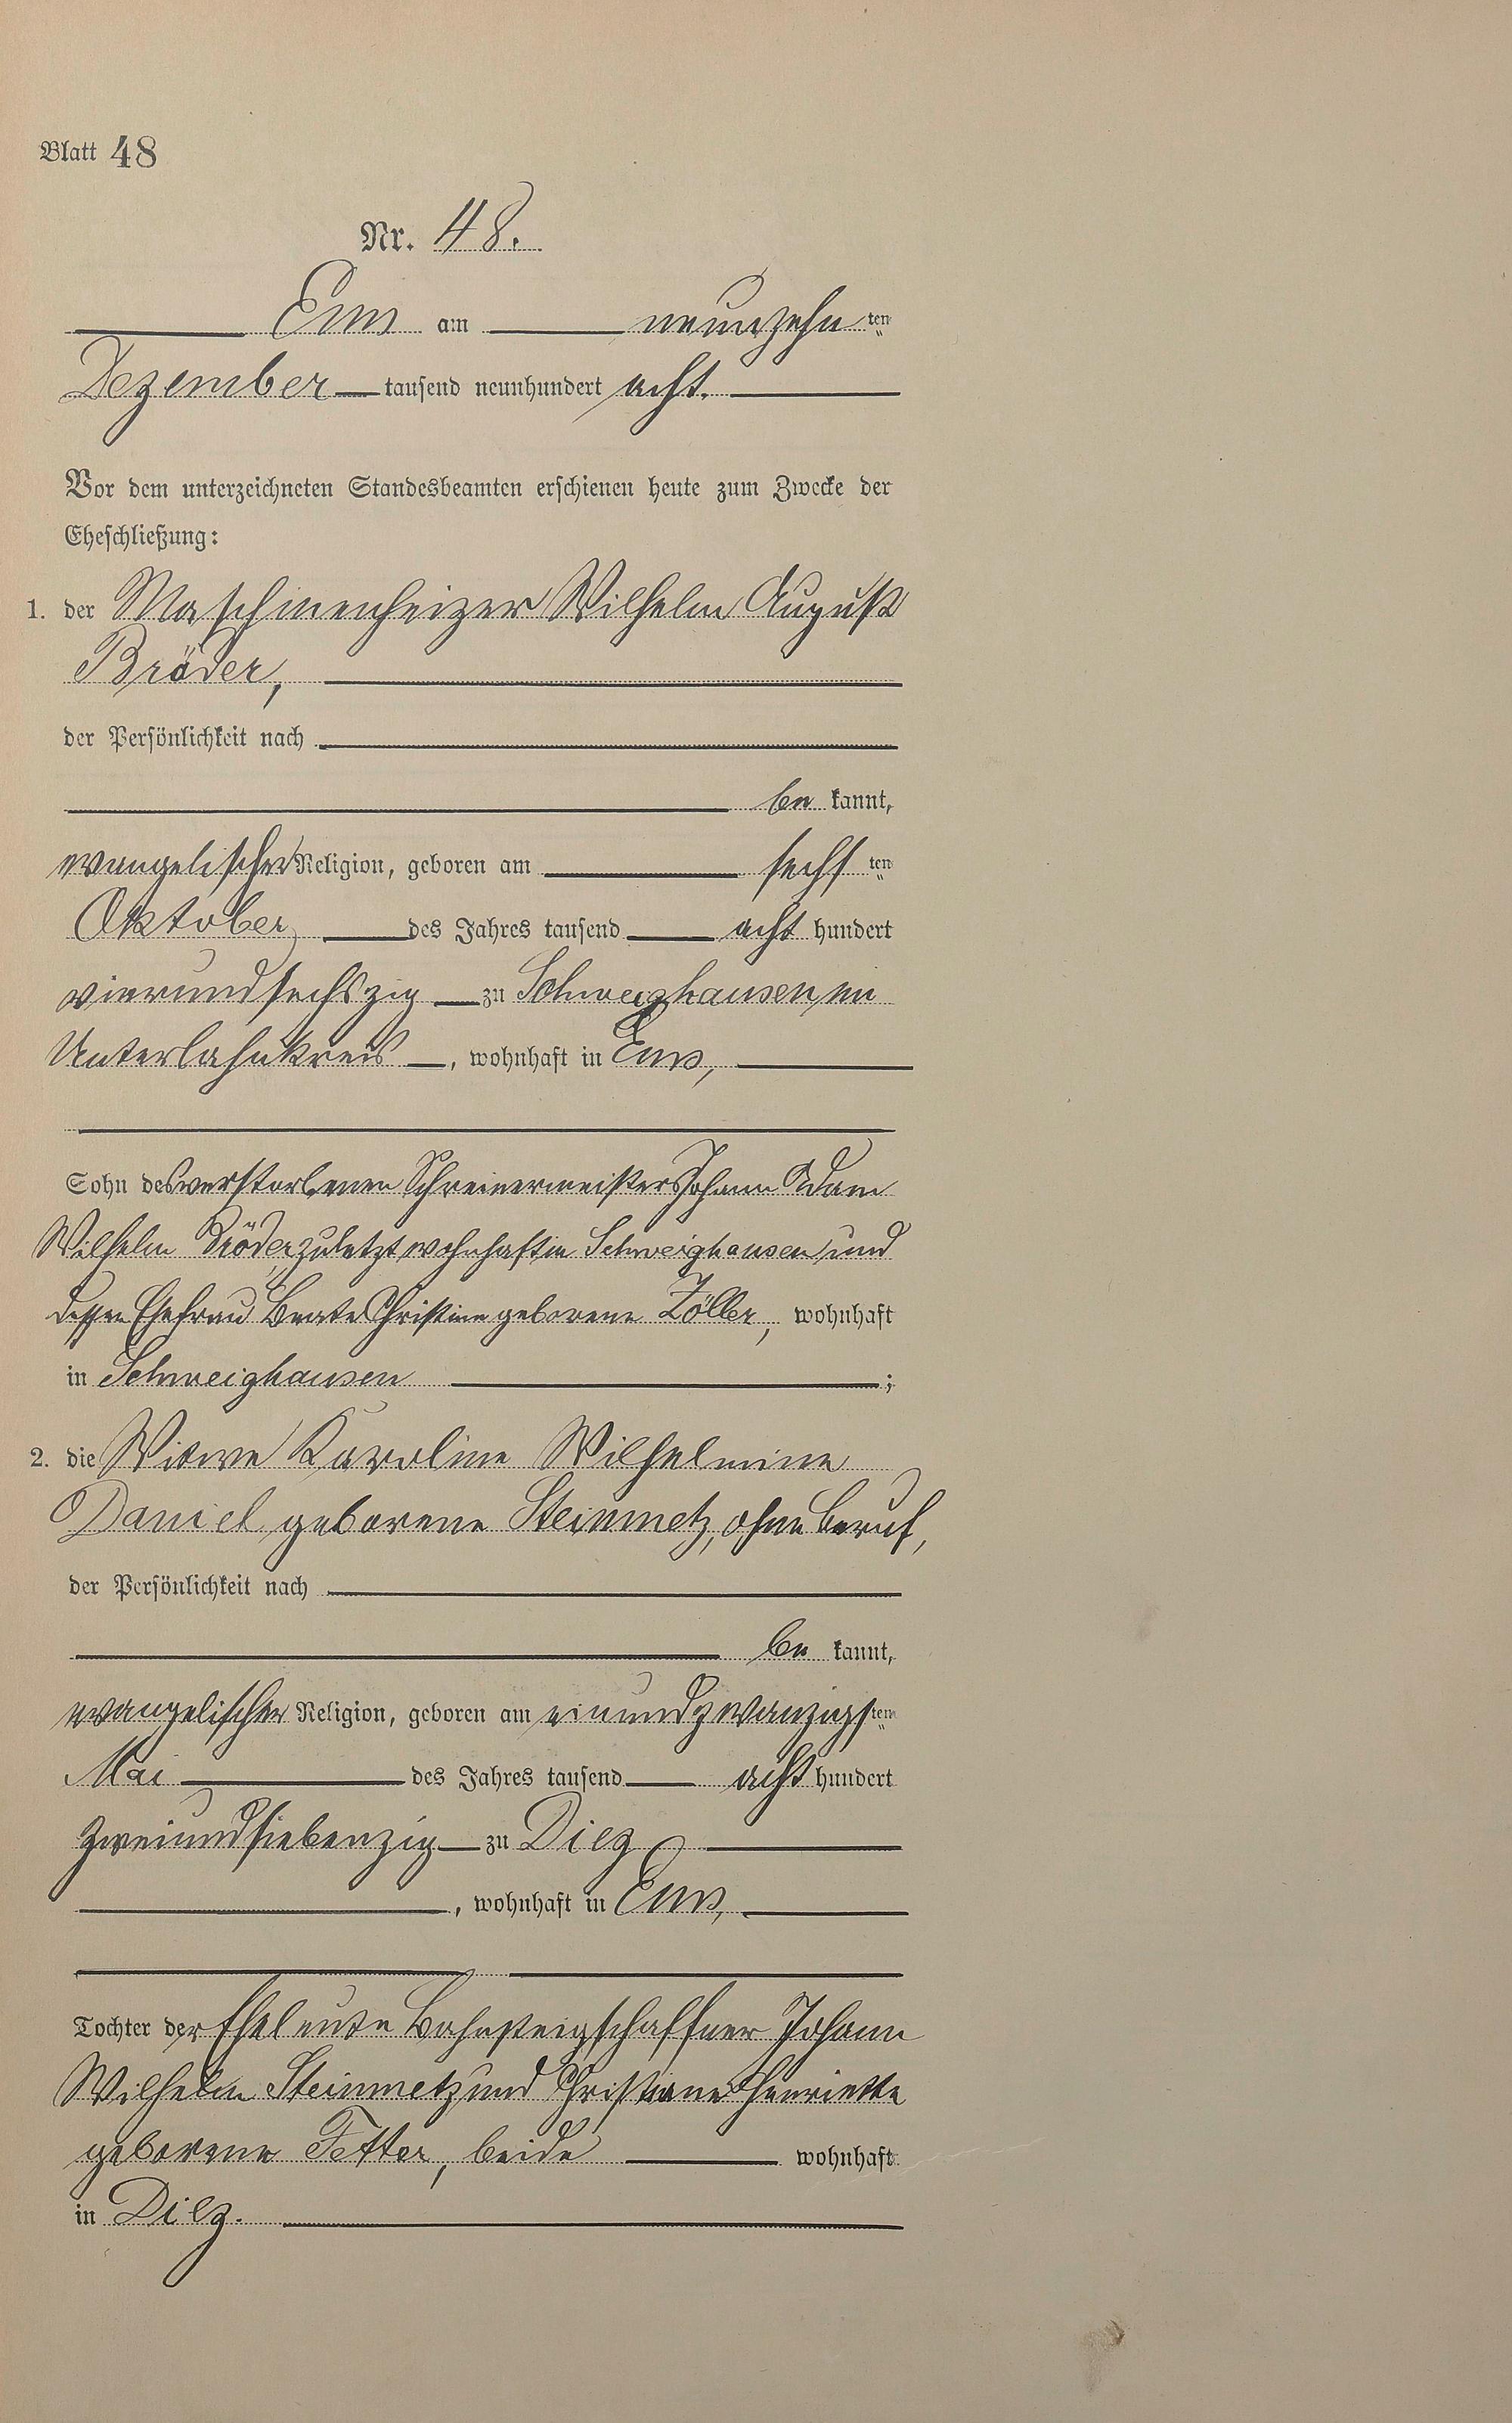 Blatt 48
Nr. 48.
Ems am neunzehn ten
Dezember tausend neunhundert acht.
Vor dem unterzeichneten Standesbeamten erschienen heute zum Zwecke der
Eheschließung:
1. der Maschinenheizer Wilhelm August
Bröder,
der Persönlichkeit nach
be kannt,
evangelischer Religion, geboren am sechs ten
Oktober des Jahres tausend acht hundert
vierundsechszig zu Schweighausen im
Unterlahnkreis, wohnhaft in Ems,
Sohn des verstorbenen Schreinermeisters Johann Adam
Wilhelm Bröder, zuletzt wohnhaft in Schweighausen und
dessen Ehefrau Beate Christine geborene Zöller, wohnhaft
in Schweighausen ;
2. die Witwe Karoline Wilhelmine
Daniel geborene Steinmetz, ohne Beruf,
der Persönlichkeit nach
be kannt,
evangelischer Religion, geboren am einundzwanzigsten
Mai des Jahres tausend acht hundert
zweiundsiebenzig zu Diez
, wohnhaft in Ems,
Tochter der Eheleute Bahnsteigschaffner Johann
Wilhelm Steinmetz und Christiane Henriette
geborene Fetter, beide wohnhaft
in Diez.